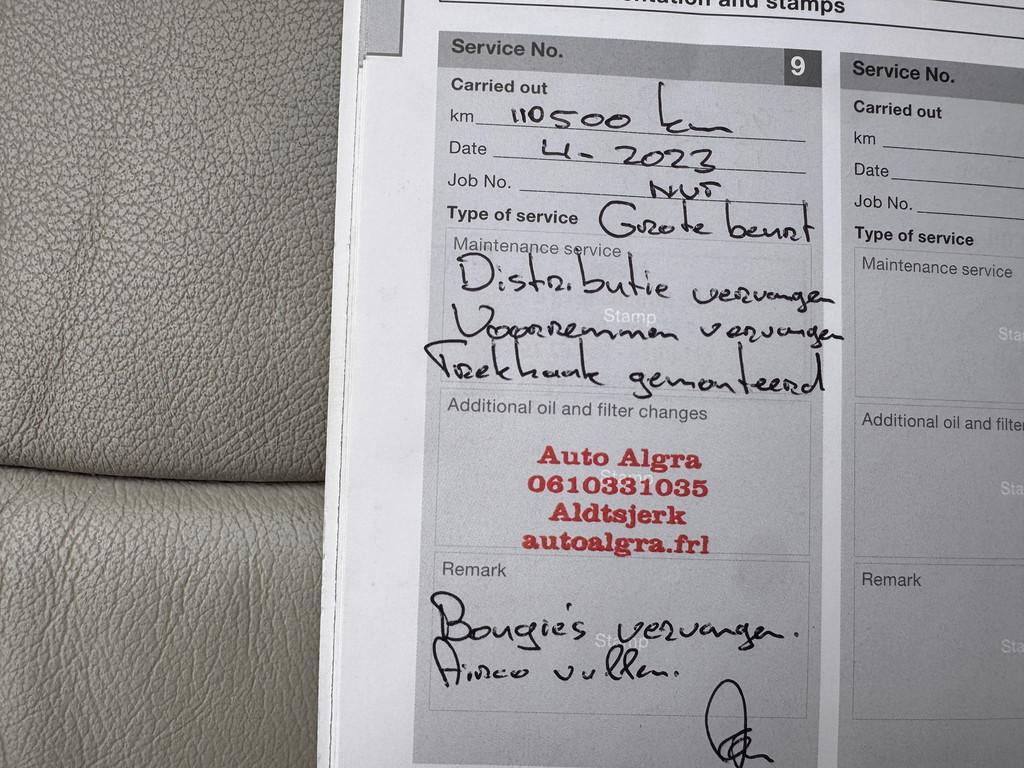 ntation and stamps
Service No. 9
Carried out
km 110500 km
Date 4-2023
Job No. NVT
Type of service Grote beurt
Maintenance service
Distributie vervangen
Stamp
Voorremmen vervangen
Trekhaak gemonteerd
Additional oil and filter changes
Stamp
Auto Algra
0610331035
Aldtsjerk
autoalgra.frl
Remark
Bougie's vervangen.
Stamp
Airco vullen.
Service No.
Carried out
km
Date
Job No.
Type of service
Maintenance service
Sta
Additional oil and filter
Sta
Remark
Sta